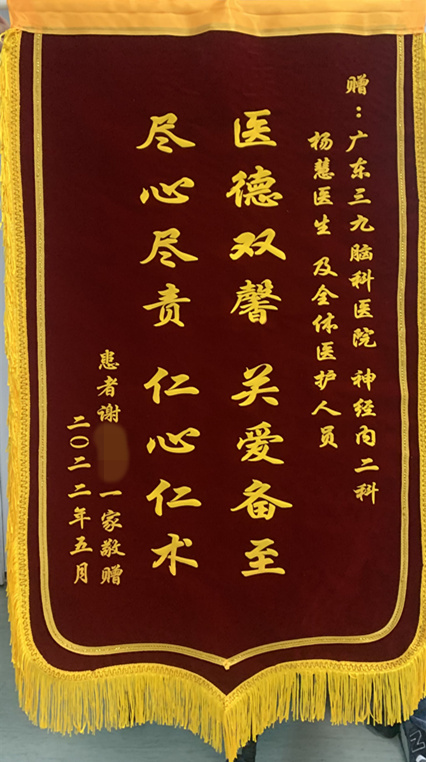 赠：广东三九脑科医院 神经内二科
杨慧医生 及全体医护人员
医德双馨 关爱备至
尽心尽责 仁心仁术
患者谢 一家敬赠
二〇二二年五月